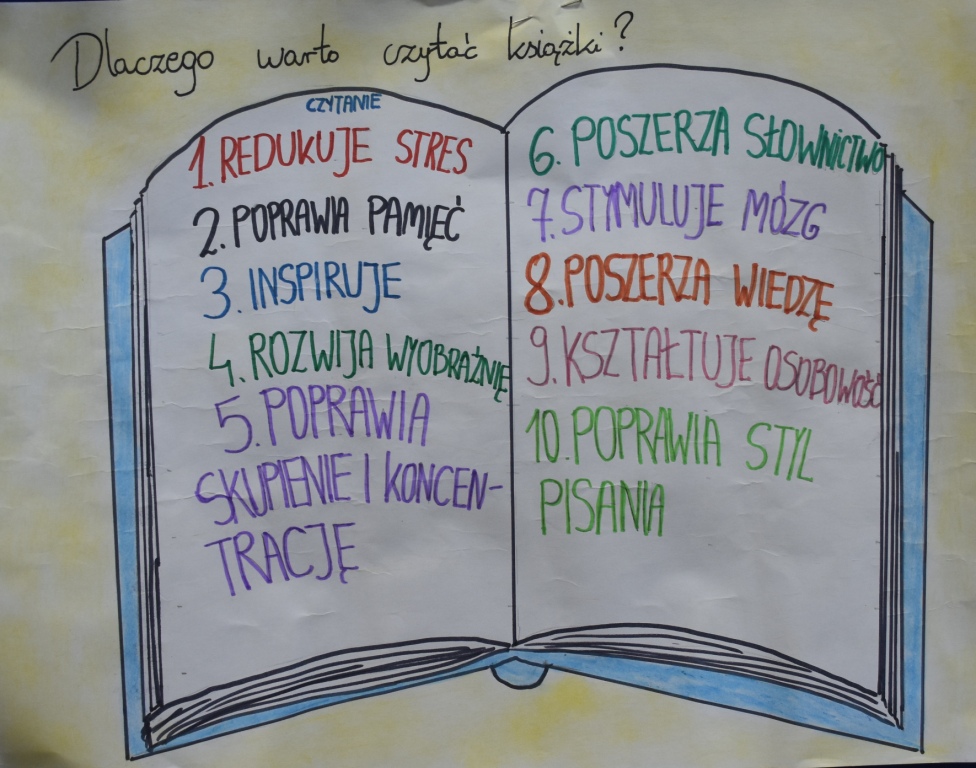 Dlaczego warto czytać książki?
CZYTANIE
1. REDUKUJE STRES
2. POPRAWIA PAMIĘĆ
3. INSPIRUJE
4. ROZWIJA WYOBRAŹNIĘ
5. POPRAWIA
SKUPIENIE I KONCEN-
TRACJĘ
6. POSZERZA SŁOWNICTWO
7. STYMULUJE MÓZG
8. POSZERZA WIEDZĘ
9. KSZTAŁTUJE OSOBOWOŚĆ
10. POPRAWIA STYL
PISANIA